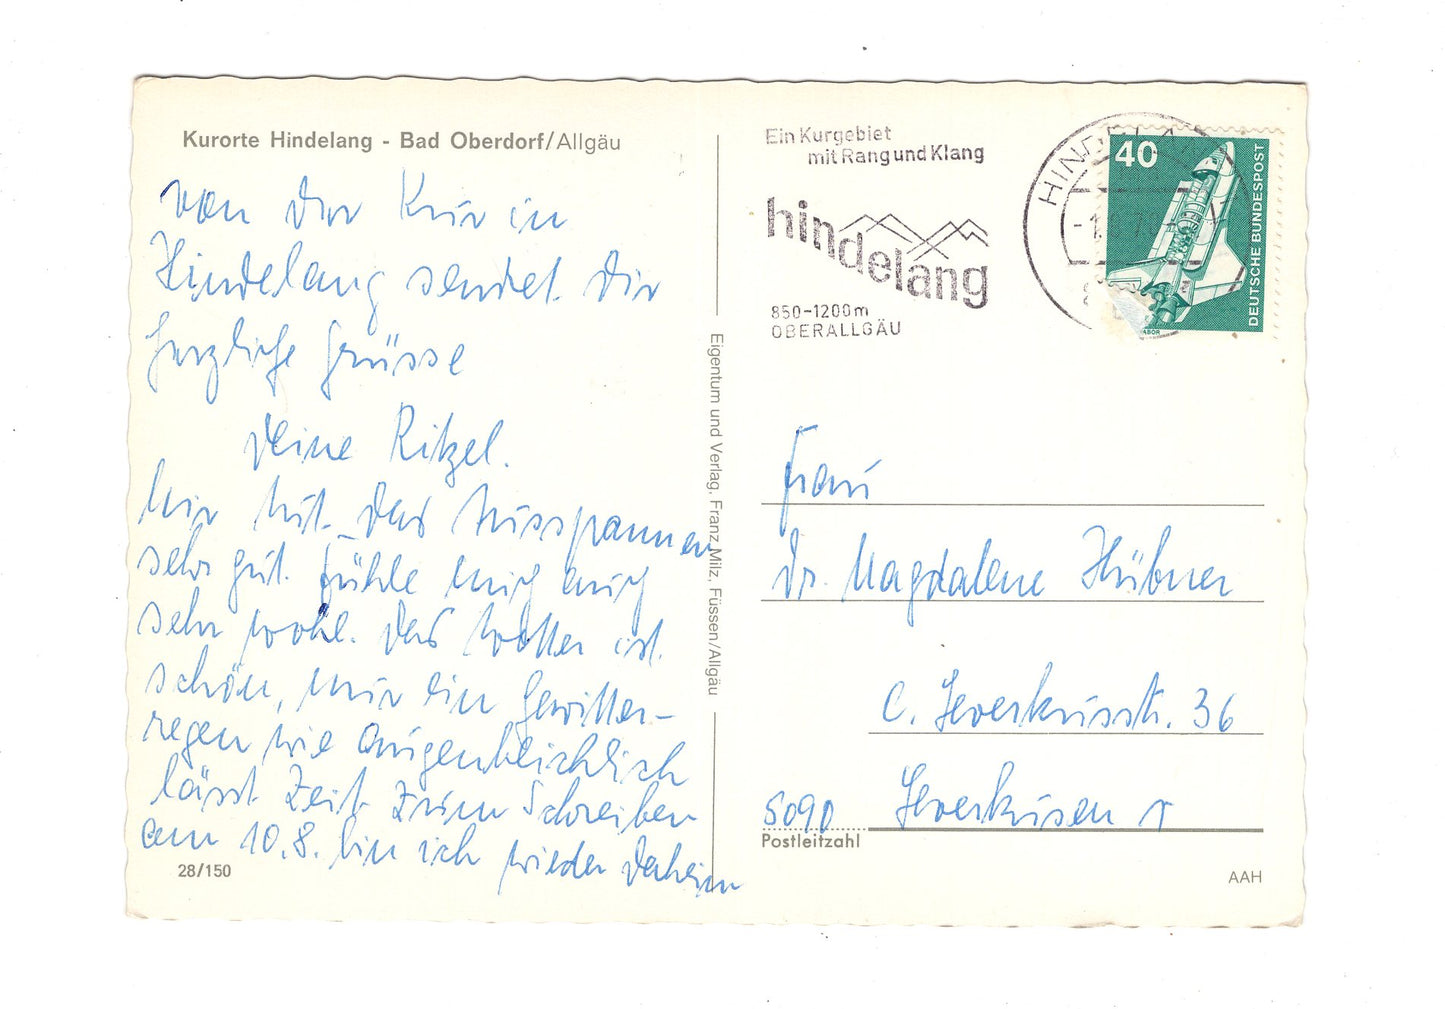 Kurorte Hindelang - Bad Oberdorf/Allgäu
von der Kur in
Hindelang sendet Dir
herzliche Grüsse
Deine Ritzel.
Mir tut das Ausspannen
sehr gut. Fühle mich auch
sehr wohl. Das Wetter ist
schön, nur ein Gewitter-
regen wie augenblicklich
lässt Zeit zum Schreiben
am 10.8. bin ich wieder daheim
28/150
Eigentum und Verlag, Franz Milz, Füssen/Allgäu
Ein Kurgebiet
mit Rang und Klang
hindelang
850-1200m
OBERALLGÄU
40
DEUTSCHE BUNDESPOST
Frau
Dr. Magdalene Hübner
C. Leverkusstr. 36
5090 Leverkusen 1
Postleitzahl
AAH